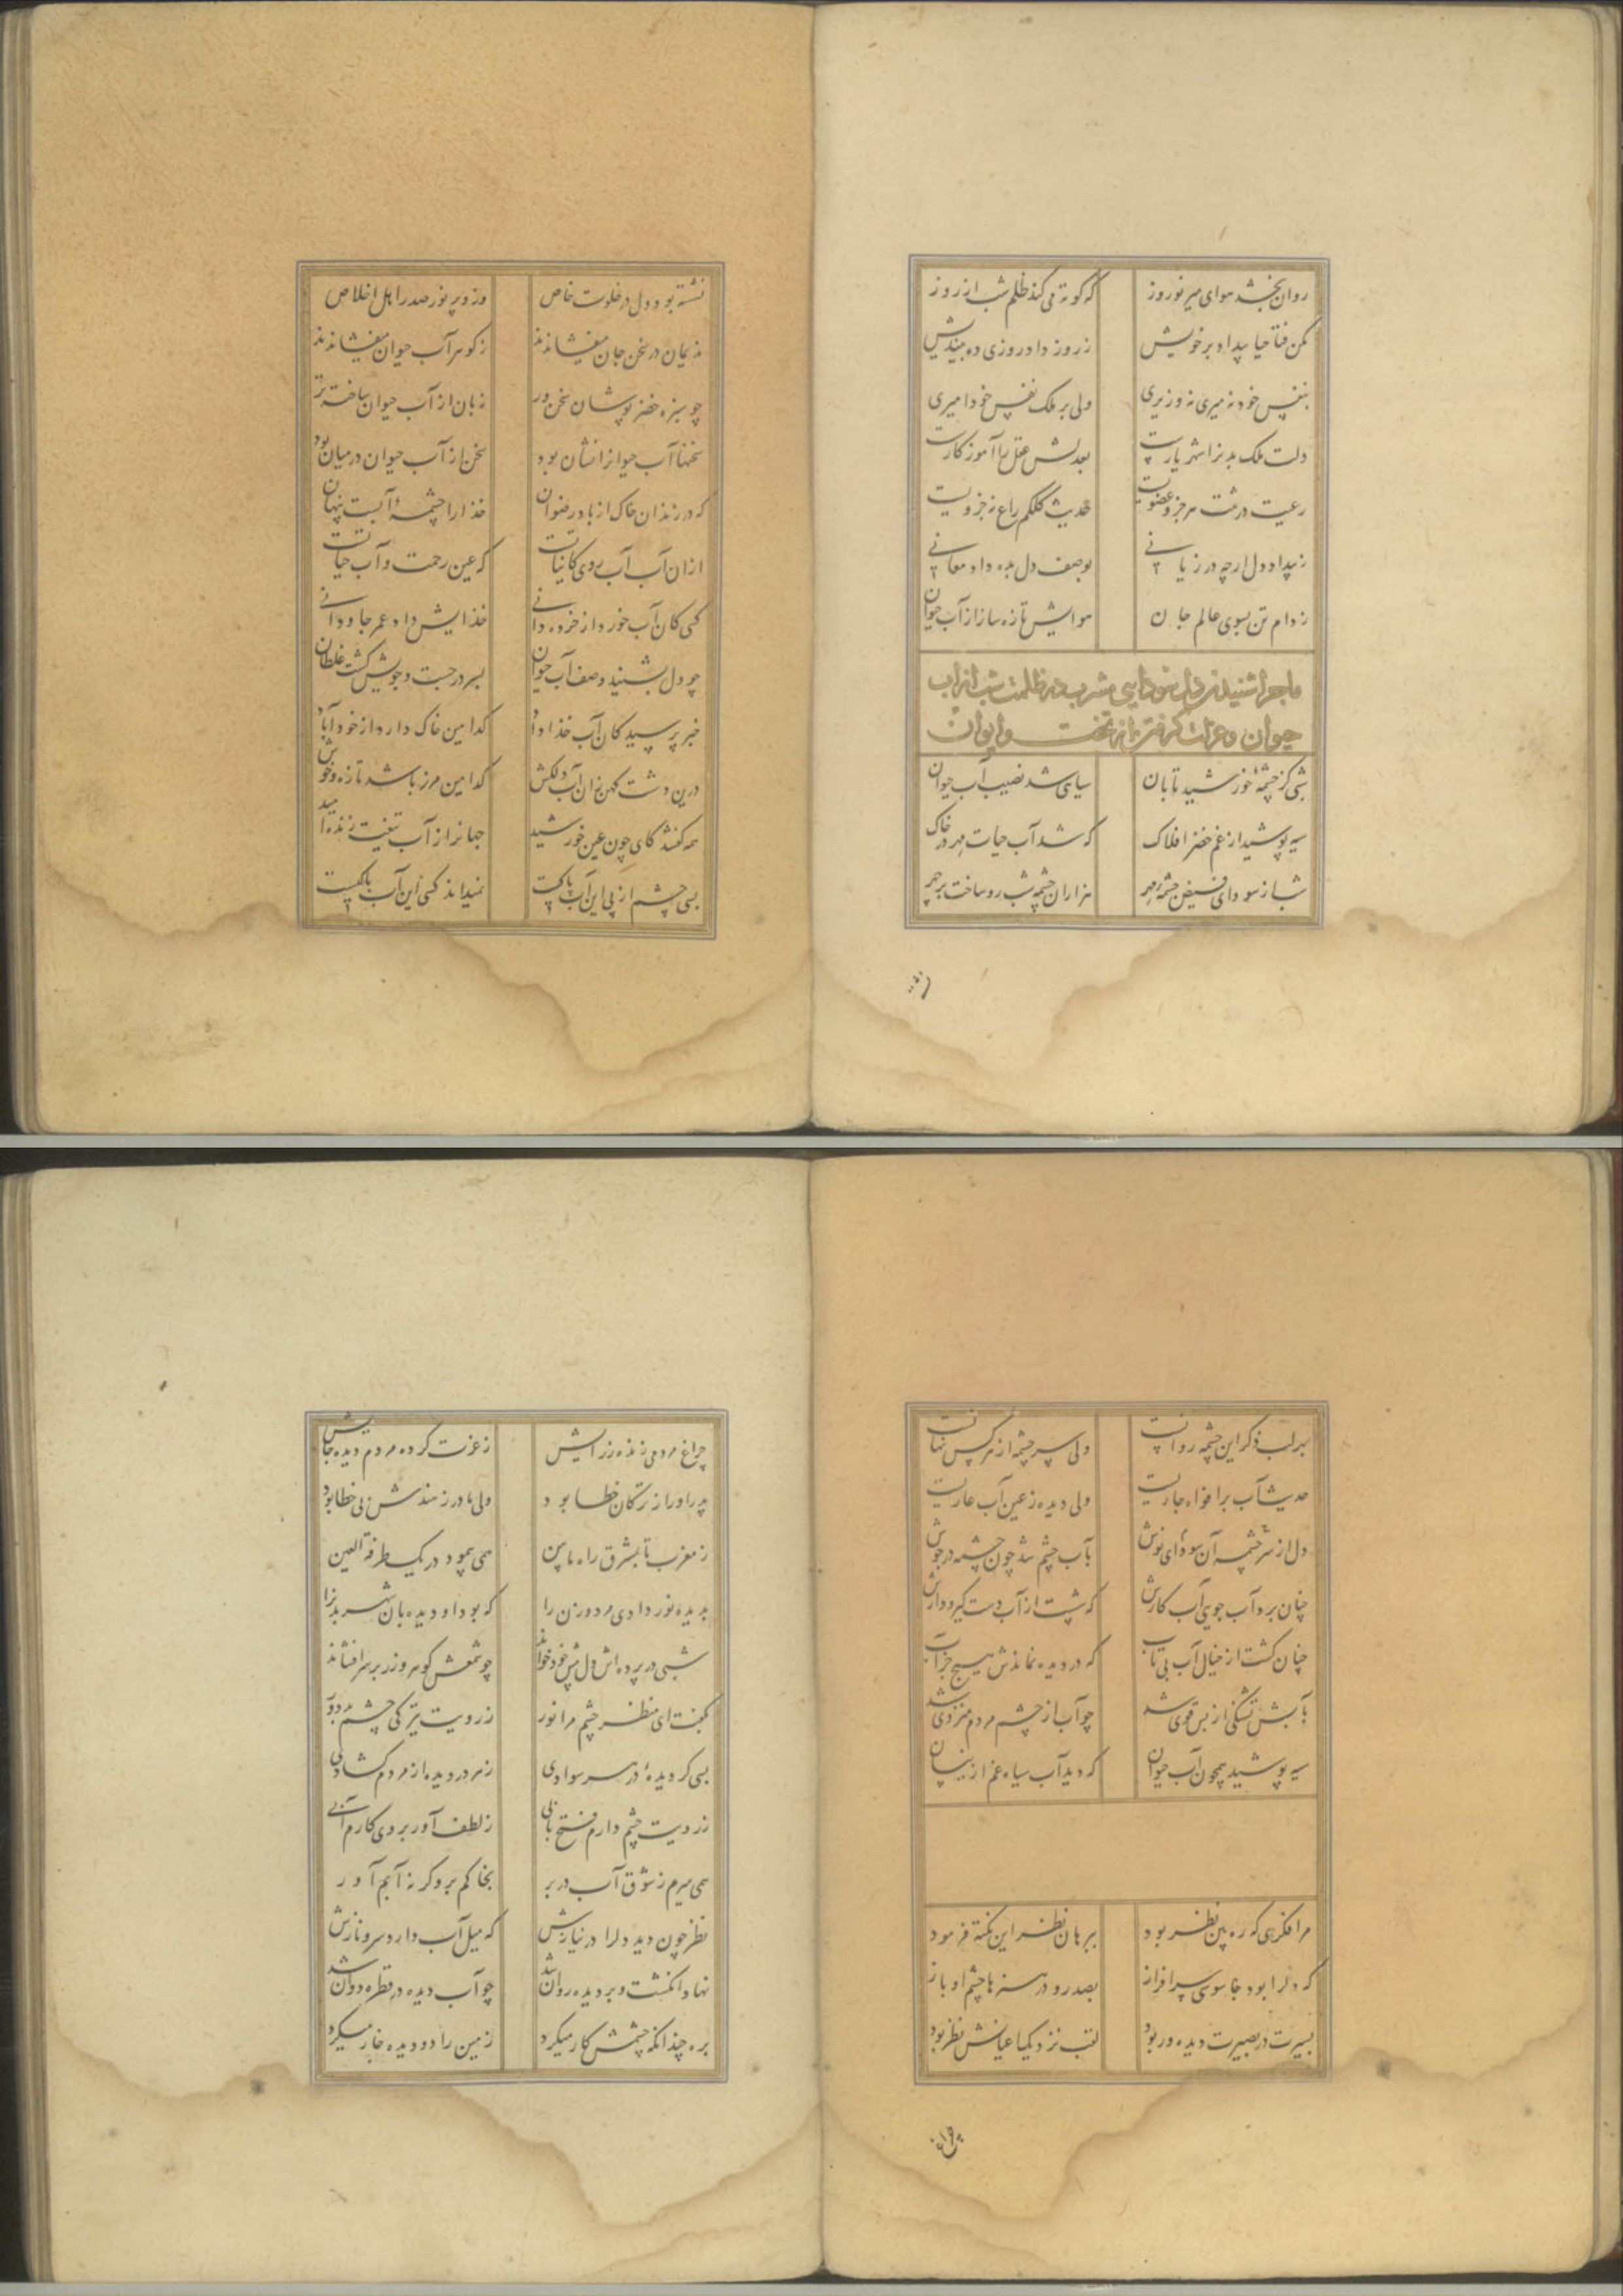 روان بخشد هوای میر نوروز که کوته می کند ظلم شب از روز
مکن فتاحیا بیداد بر خویش ز روز داد روزی ده بیندیش
بنفس خود نه میری نه وزیری ولی بر ملک نفس خود امیری
دلت ملک بدنرا شهریارست بعدلش عقل را آموزکارست
رعیت در تنت هر جزو عضویت حدیث کلکم راع نه جزویت
ز بیداد دل ارچه در زیانی بوصف دل بده داد معانی
ز دام تن بسوی عالم جان هوایش تازه ساز از آب حیوان
ماجرا شنیدن دل سودایی مشرب در ظلمت شب از آب
حیوان و عزلت کرفتن از تخت و ایوان
شبی کز چشمهٔ خورشید تابان سیاهی شد نصیب آب حیوان
سیه پوشید از غم خضر افلاک که شد آب حیات مهر در خاک
شب از سودای فیض چشمهٔ مهر هزاران چشمه شب رو ساخت بر چهر
نشسته بود دل در خلوت خاص وزو پر نور صدر اهل اخلاص
ندیمان در سخن جان میفشاندند ز کوهر آب حیوان میفشاندند
چو سبزه خضر پوشان سخن ور زبان از آب حیوان ساخته تر
سخنها آب حیوانرا نشان بود سخن از آب حیوان در میان بود
که در زندان خاک از باد رضوان خدا را چشمهٔ آبست پنهان
ازان آب آب روی کانیاتست که عین رحمت و آب حیاتست
کسی کان آب خورد از خرده دانی خدایش داد عمر جاودانی
چو دل بشنید وصف آب حیوان بسر در جست و جویش کشت غلطان
خبر پرسید کان آب خدا داد کدامین خاک دارد از خود آباد
درین دشت کهن زان آب دلکش کدامین مرز باشد تازه و خوش
همه کفتند کای چون عین خورشید جهانرا از آب تیغت زنده امید
بسی چشم از پی این آب پاکست نمیداند کسی این آب پاکیست
بهر لب ذکر این چشمه روانست ولی سرچشمه از هر کس نهانست
حدیث آب بر افواه جاریست ولی دیده ز عین آب عاریست
دل از سرچشمه آن سودای نوش بآب چشم شد چون چشمه در جوش
چنان برد آب جویی آب کارش که شست از آب دست کیر و دارش
چنان کشت از خیال آب بی تاب که در دیده نماندش هیچ جز آب
بآبش تشنکی از بس قوی شد چو آب از چشم مردم منزوی شد
سیه پوشید همچون آب حیوان که دید آب سیاه غم از ینسان
مرا فکری که ره بین نظر بود ببرهان نظر این نکته فرمود
که دلرا بود جاسوسی سرافراز بصد رو در هنرها چشم او باز
بسیرت در بصیرت دیده ور بود لقب نزدیک اعیانش نظر بود
چراغ مردمی زنده ز رایش ز عزت کرده مردم دیده جایش
پدر او را ز ترکان خطا بود ولی مادر ز هندش بی خطا بود
ز مغرب تا بمشرق راه مابین همی پیمود در یک طرفة العین
بدیده نور دادی مرد و زن را که بود او دیده بان شهر بدنرا
شبی در پرده اش دل پیش خود خواند چو شمعش کوهر و زر بر سر افشاند
بکفت ای منظر چشم مرا نور ز رویت تیرکی چشم بد دور
بسی کردیدهٔ در هر سوادی ز هر در دیده از مردم کشادی
ز رویت چشم دارم فتح بابی ز لطف آور بروی کارم آبی
همی میرم ز شوق آب در بر بخاکم بر وکر نه آبم آور
نظر چون دید دلرا در نیازش که میل آب دارد سرو نازش
نهاد انکشت و بر دیده روان شد چو آب دیده در قطره دوان شد
بره چندانکه چشمش کار میکرد زمین را دو دیده خار میکرد